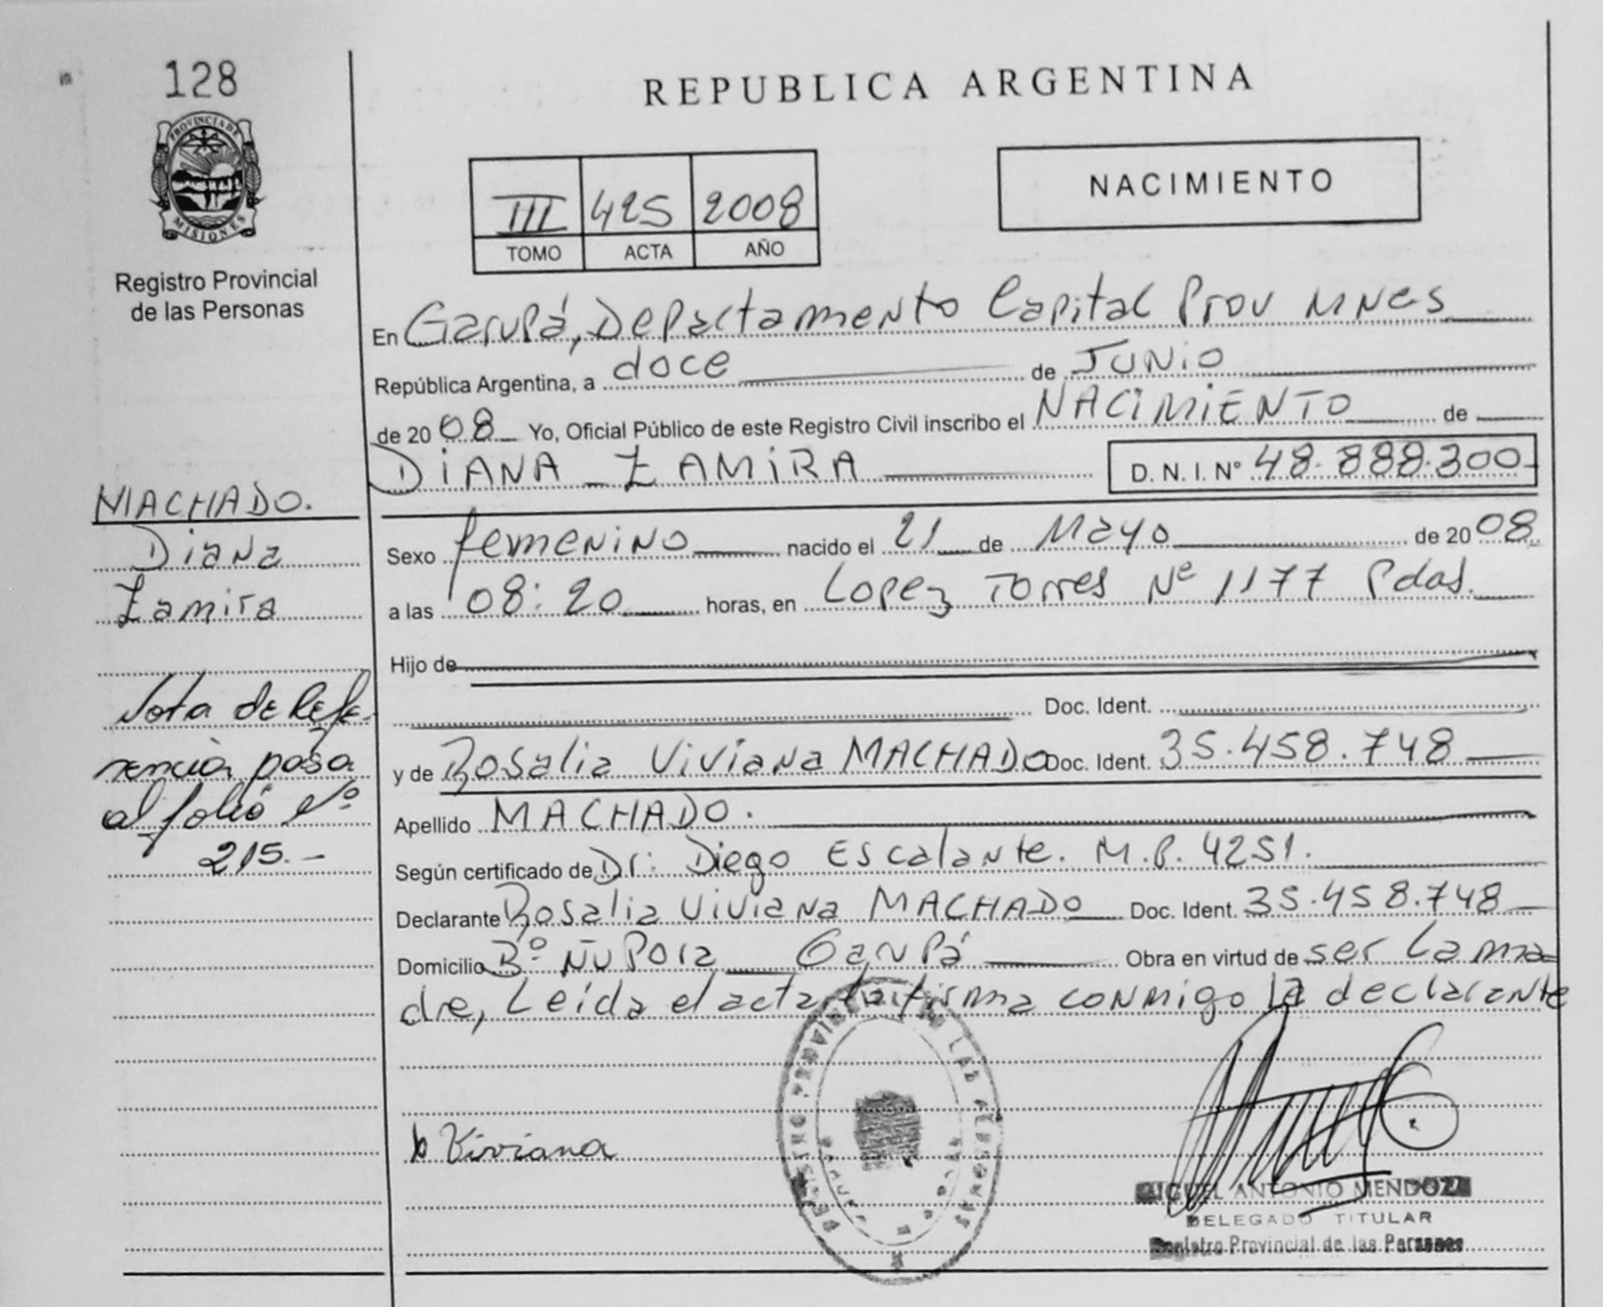 128
PROVINCIA DE
MISIONES
Registro Provincial
de las Personas
REPUBLICA ARGENTINA
III 425 2008
TOMO ACTA AÑO
NACIMIENTO
En Garupá, Departamento Capital Prov MNes
República Argentina, a doce de JUNIO
de 20 08 Yo, Oficial Público de este Registro Civil inscribo el NACIMIENTO de
DIANA ZAMIRA D. N. I. Nº 48.888.300
MACHADO.
Diana
Zamira
Sexo femenino nacido el 21 de Mayo de 20 08
a las 08:20 horas, en Lopez Torres Nº 1177 Pdas.
Hijo de
Doc. Ident.
y de Rosalia Viviana MACHADO Doc. Ident. 35.458.748
Apellido MACHADO.
Según certificado de Dr. Diego Escalante. M.P. 4251.
Declarante Rosalia Viviana MACHADO Doc. Ident. 35.458.748
Domicilio Bº ÑU PORA Garupá Obra en virtud de ser la ma
dre, Leída el acta, la firma conmigo la declarante
Nota de Refe
rencia pasa
al folio Nº
215.-
Viviana
REGISTRO PROVINCIAL DE LAS PERSONAS
MIGUEL ANTONIO MENDOZA
DELEGADO TITULAR
Registro Provincial de las Personas